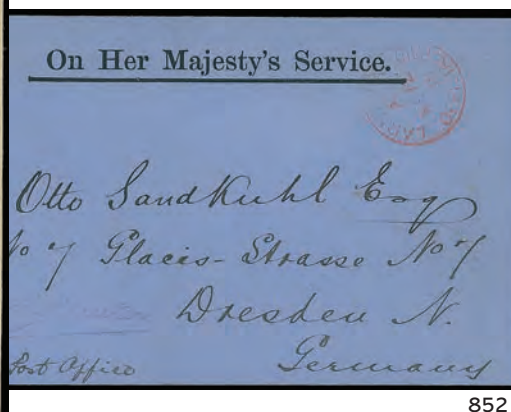 On Her Majesty's Service.
Otto Sandkuhl Esq
No 7 Glacis-Strasse No 7
Dresden N.
Post Office
Germany
852